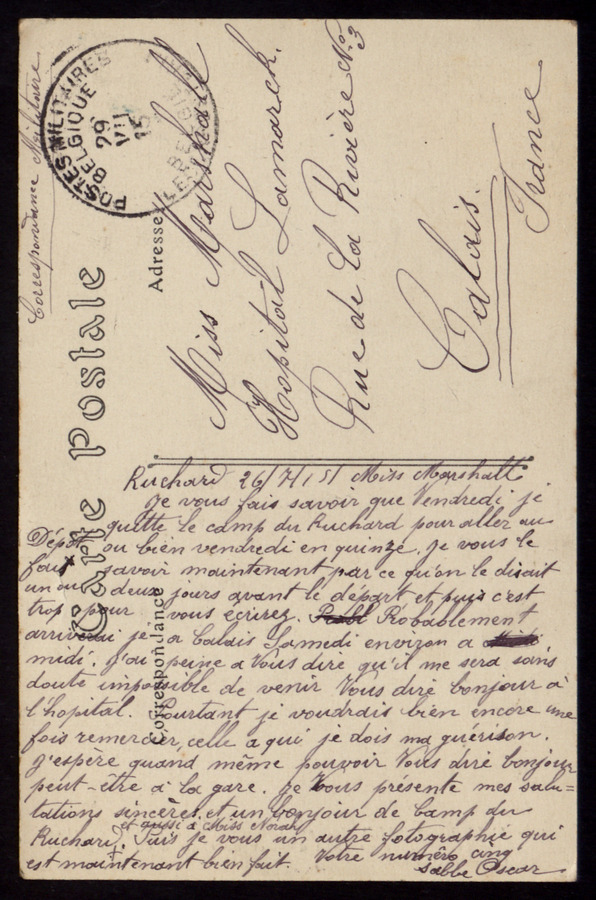 Correspondance Militaire
POSTES MILITAIRES
BELGIQUE
29
VII
15
Carte Postale
Adresse
Miss Marshall
Hopital Lamarck.
Rue de la Rivière No 3
Calais.
France
Correspondance
Ruchard 26/7/15/ Miss Marshall
Je vous fais savoir que Vendredi je
quitte le camp du Ruchard pour aller au
Dépôt ou bien vendredi en quinze. Je vous le
fais savoir maintenant parce qu'on le disait
un ou deux jours avant le départ et puis c'est
trop pour vous écrirez. Robablement
arriverai je a Calais Samedi environ a
midi. J'ai peine a Vous dire qu'il me sera sans
doute impossible de venir Vous dire bonjour a
l'hopital. Pourtant je voudrais bien encore une
fois remercier, celle a qui je dois ma guérison.
J'espère quand même pouvoir Vous dire bonjour
peut-être a la gare. Je Vous présente mes salu=
tations sincères, et un bonjour de Camp du
et aussi a Miss Norah
Ruchard. Suis je vous un autre fotographie qui
est maintenant bien fait. Votre numéro cinq
Sabbe Oscar